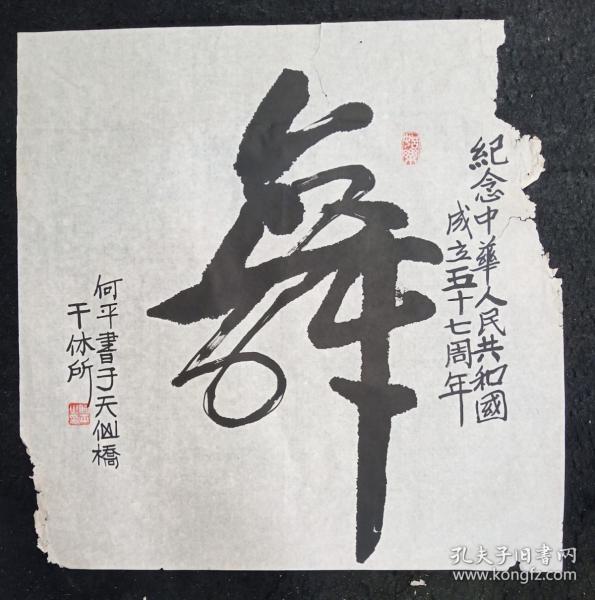 紀念中華人民共和國
成立五十七周年
舞
何平書于天仙橋
干休所
孔夫子旧书网
www.kongfz.com